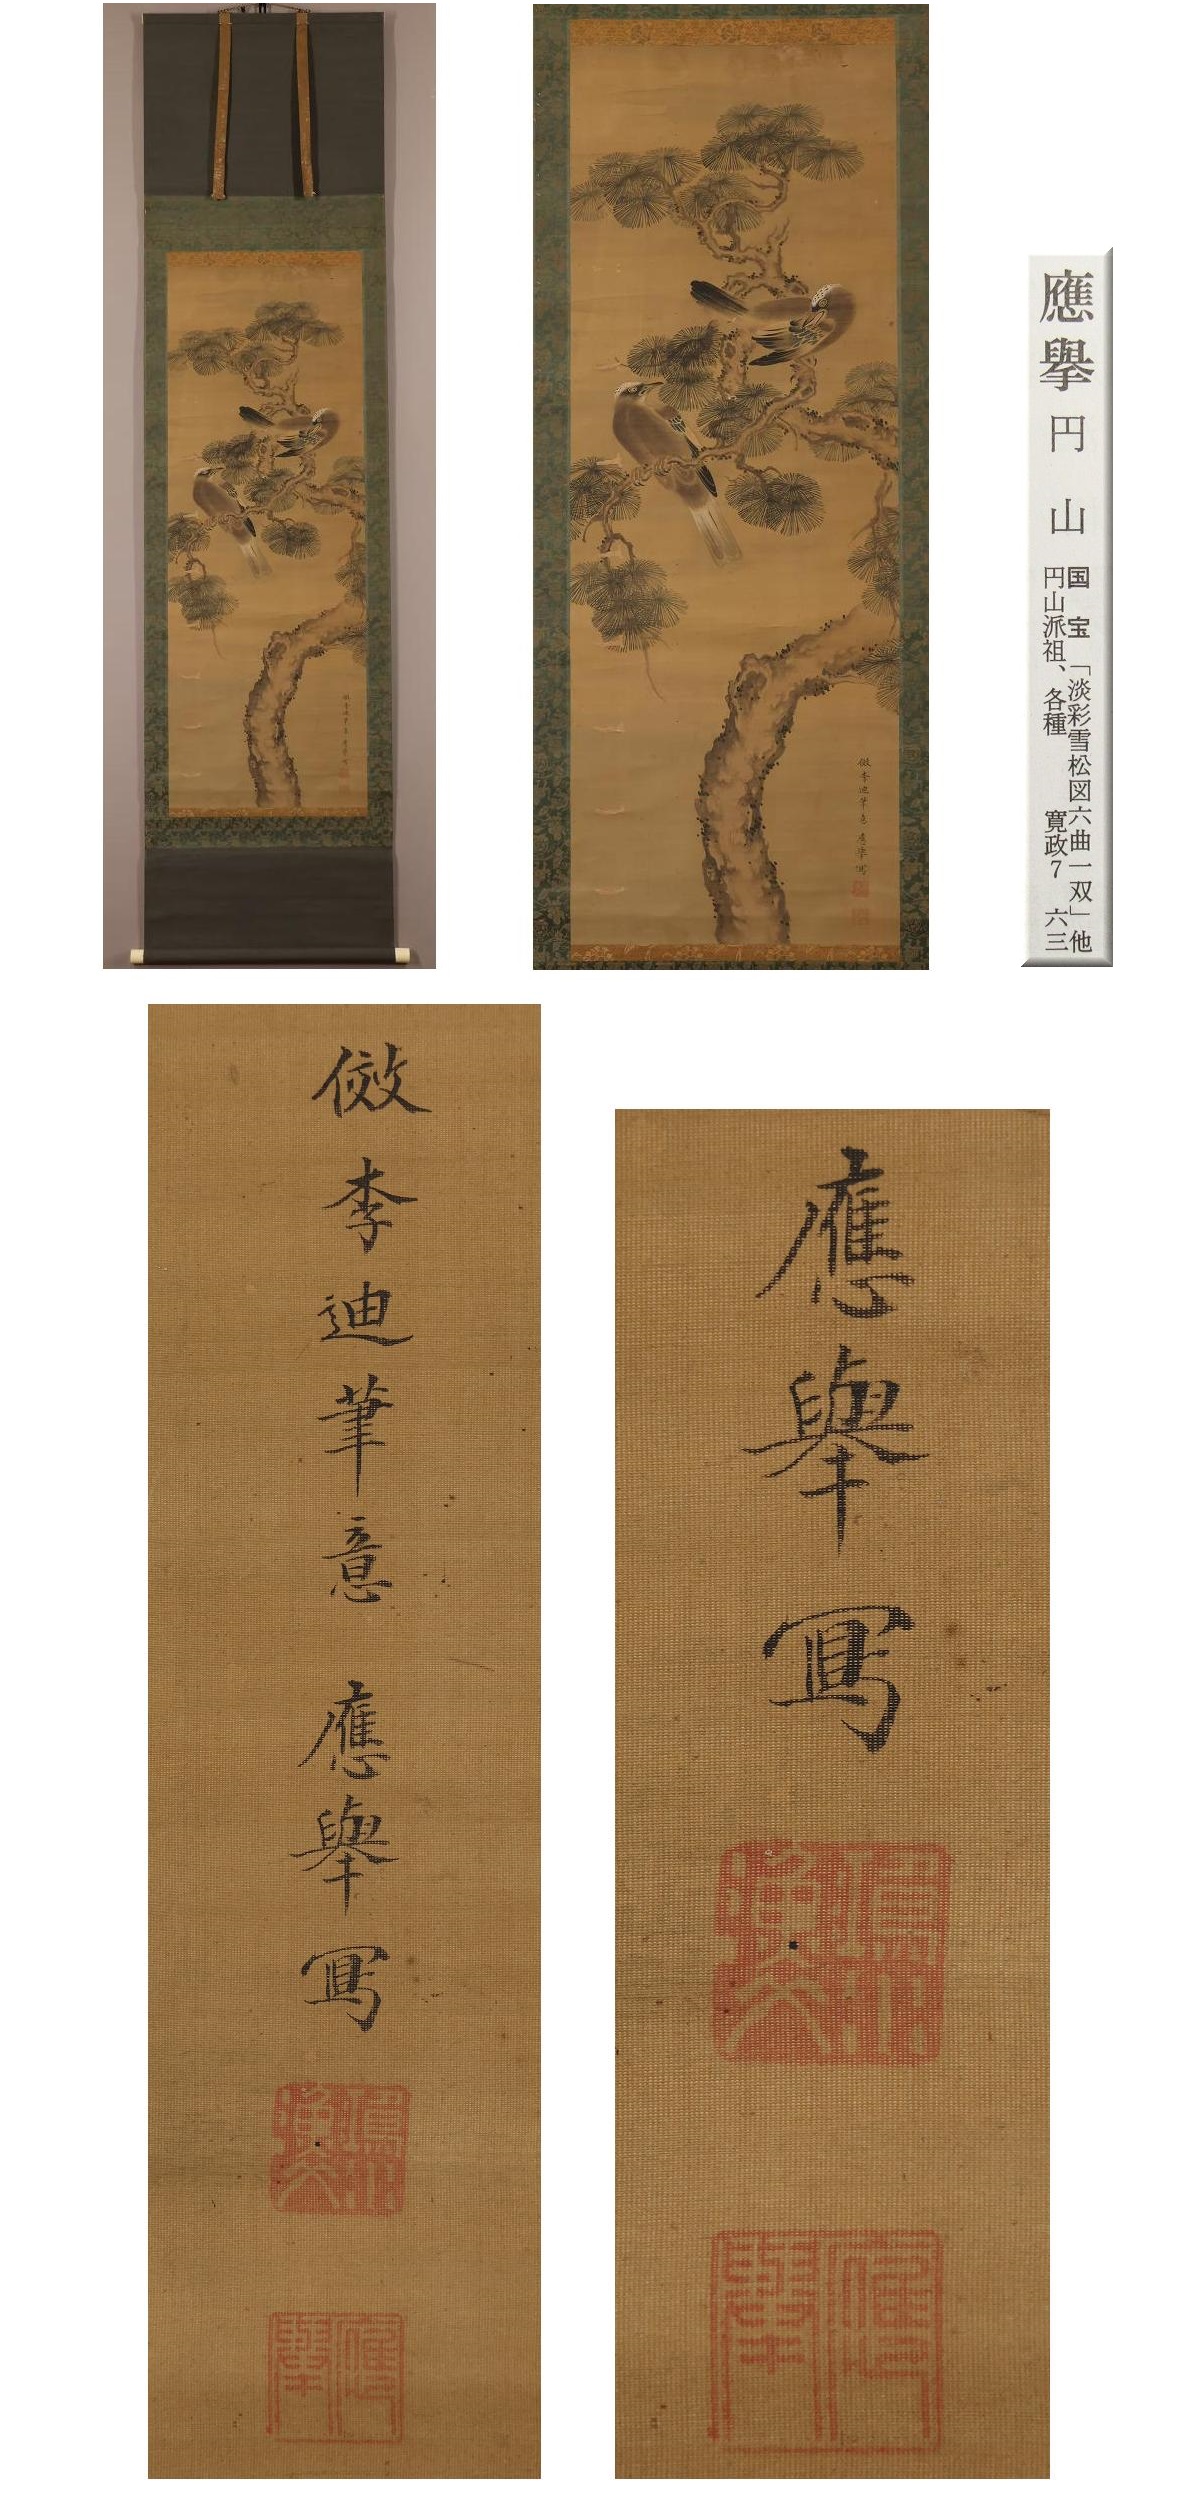 倣李迪筆意 應擧寫
應擧 円山 国宝「淡彩雪松図六曲一双」他
円山派祖、各種 寛政7 六三
倣李迪筆意 應擧寫
應擧寫